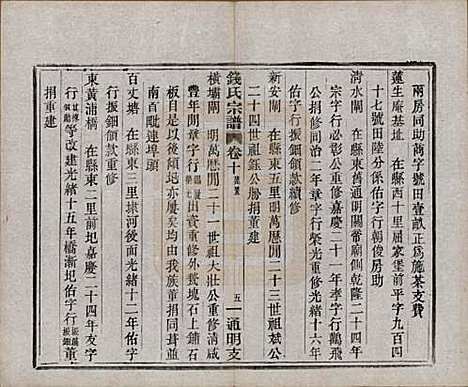 兩房同助商字號田壹畝正爲施茶支費
蓮生庵基址 在縣西十里屆家堡前平字九百四
十七號田陸分係佑字行朝俊房助
清水閘 在縣東萬通明閘常廟側乾隆二十四年
宗字行必彰公重修嘉慶二十一年孝字行鶴飛
公捐修同治二年章字行榮光重修光緒十六年
佑字行振鈿領款重修
新安閘 在縣東五里明萬曆間二十三世祖斌公
二十四世祖鈺公勝捐重建
錢氏宗譜 卷十 五 一通明支
橫壩閘 明萬曆間二十一世祖大壯公重修清咸
豐年間章字行重修外甃塊石上鋪石
板以後傾圮亦屢矣均由我族董捐集拷並
南首毗連埠頭
百丈塘 在縣東三里塜河後面光緒十二年佑字
行振鈿領款重修
東黃浦橋 在縣東二里前圯嘉慶二十四年友字
行等改建光緒十五年橋漸圯佑字行董
捐重建